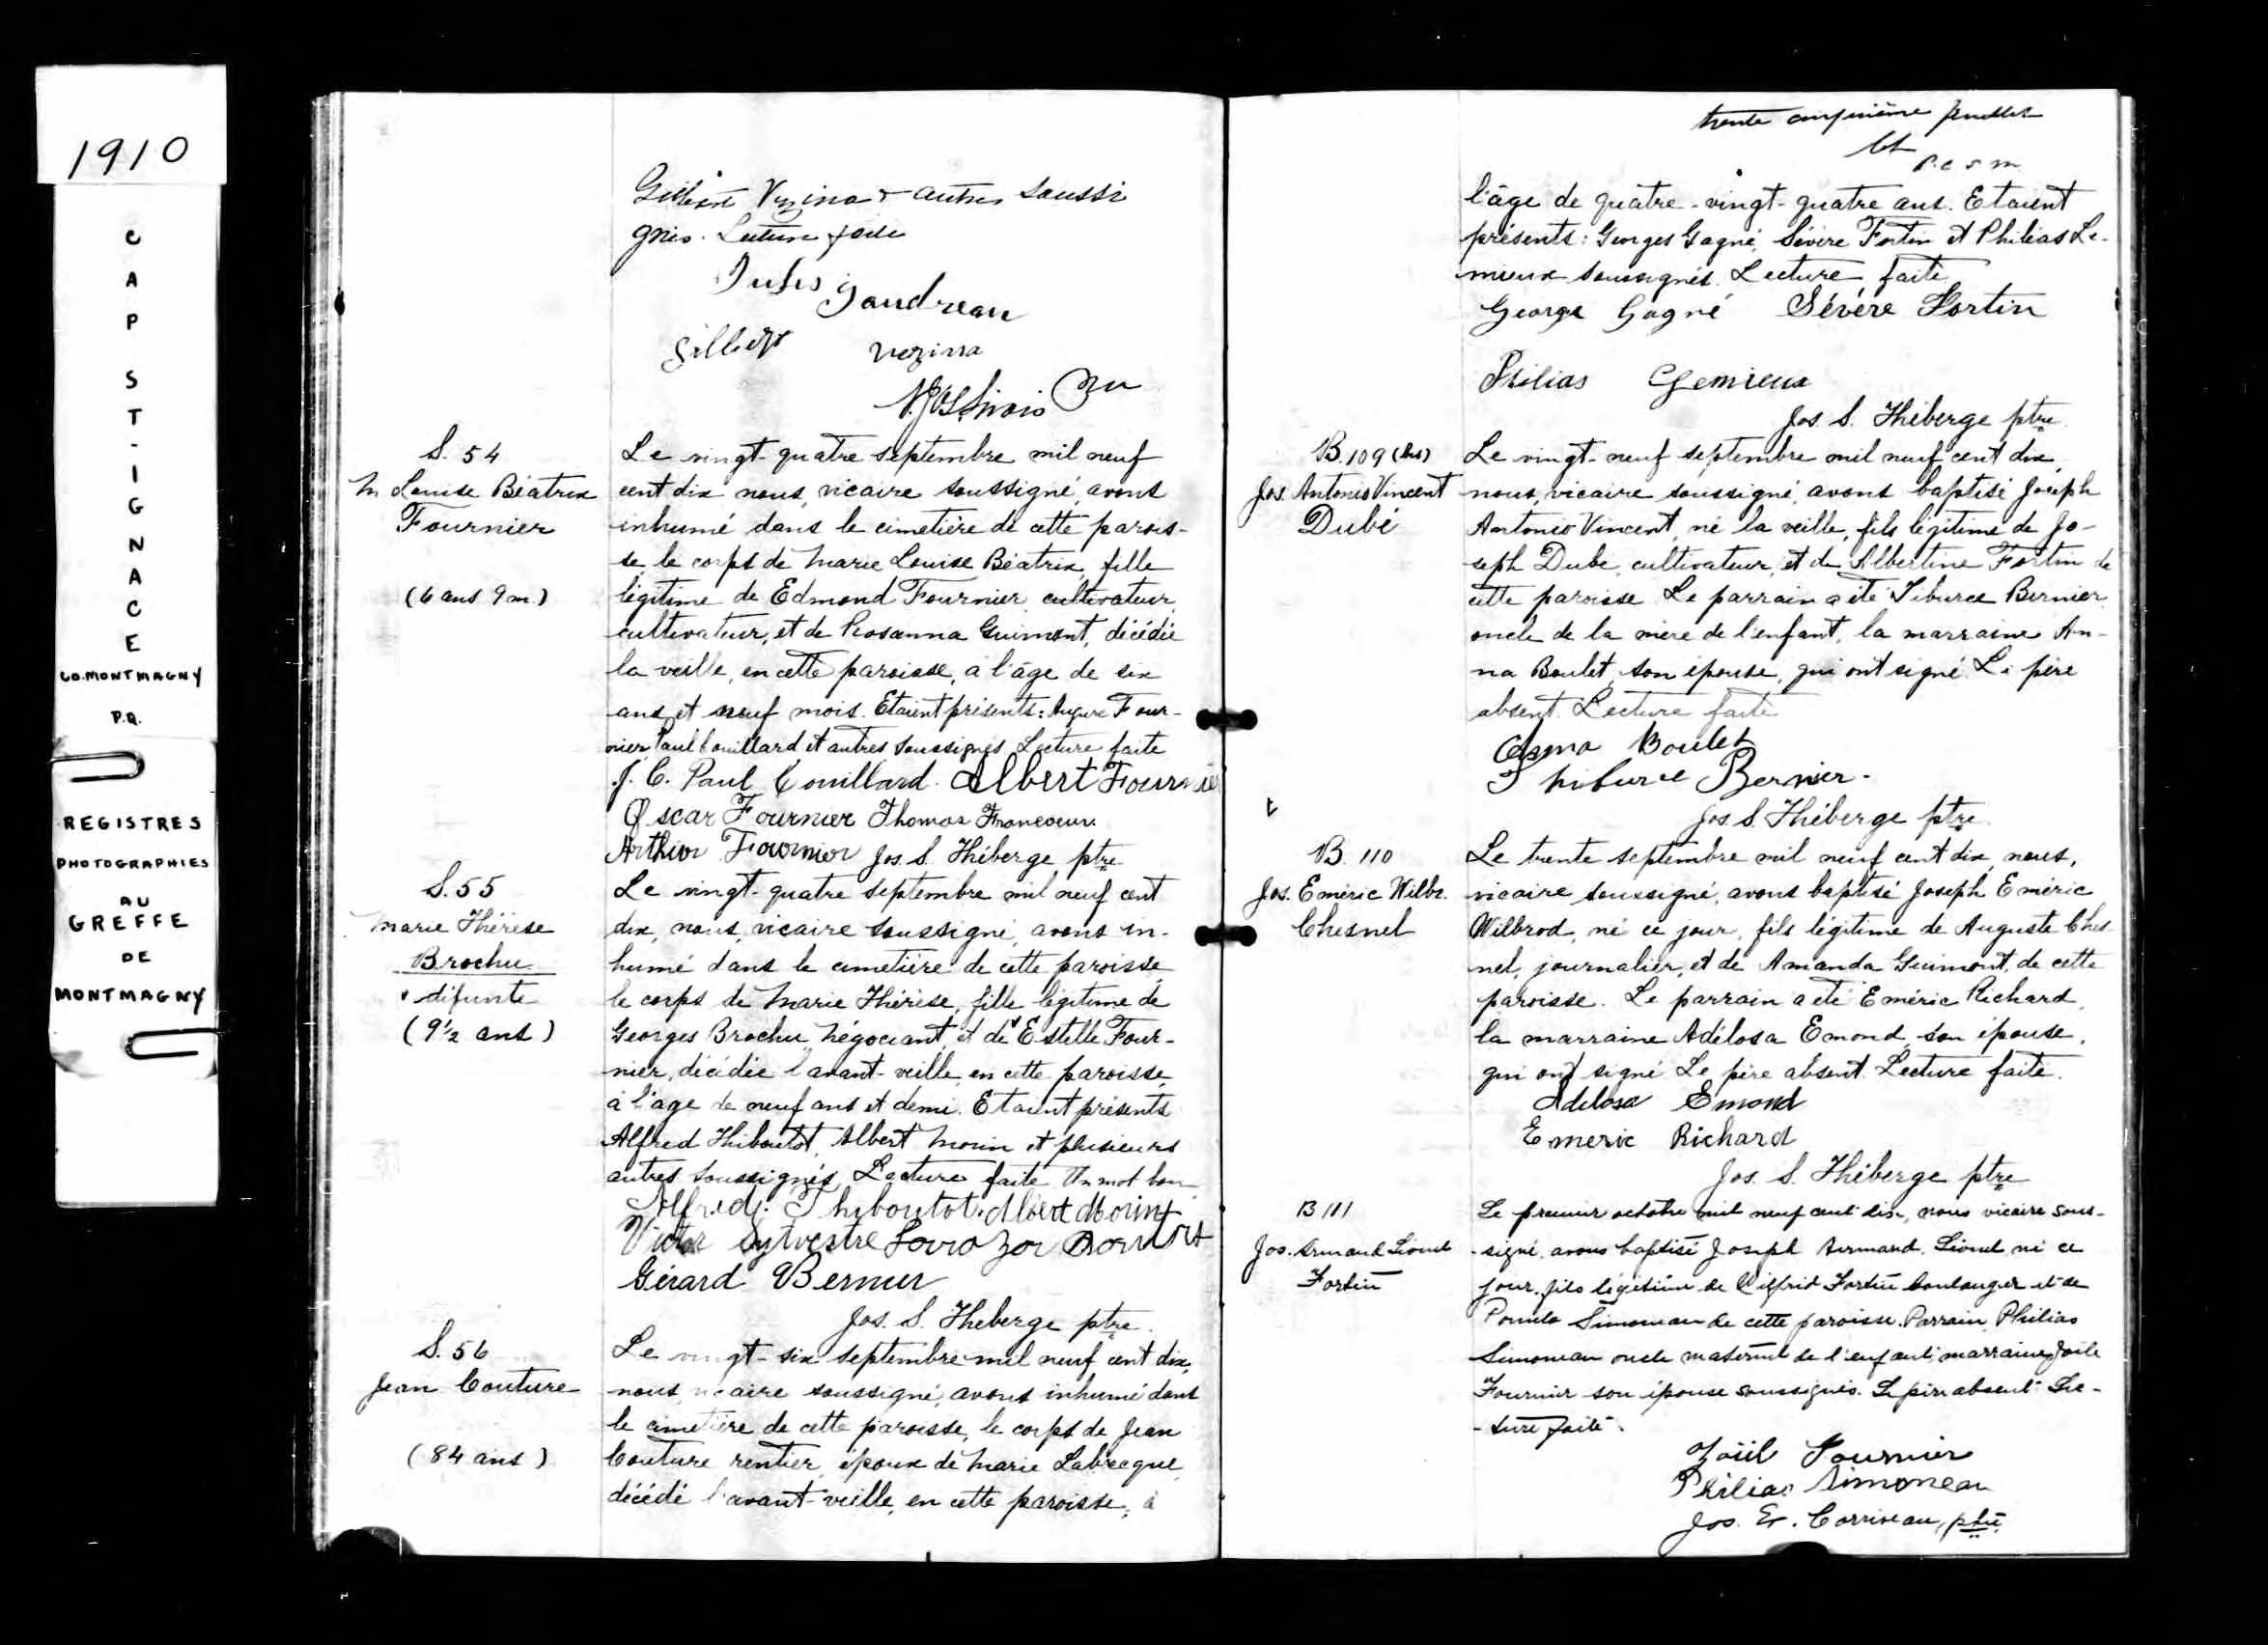 1910
CAP ST-IGNACE
CO. MONTMAGNY
P.Q.
REGISTRES
PHOTOGRAPHIES
AU
GREFFE
DE
MONTMAGNY
Gilbert Vezina & autres soussi
gnés. Lecture faite
Jules Gaudreau
Gilbert Vezina
S. 54
M Louise Béatrix
Fournier
(6 ans 9 m.)
Le vingt-quatre septembre mil neuf
cent dix nous, vicaire soussigné, avons
inhumé dans le cimetière de cette parois-
se, le corps de Marie Louise Béatrix, fille
légitime de Edmond Fournier, cultivateur,
cultivateur, et de Rosanna Guimont, décédée
la veille, en cette paroisse, à l'âge de six
ans et neuf mois. Etaient présents: Four-
nier, Paul Couillard et autres soussignés Lecture faite
J. C. Paul Couillard. Albert Fournier
Oscar Fournier Thomas Francoeur.
Arthur Fournier Jos. S. Théberge ptre
S. 55
Marie Thérèse
Brochu
v défunte
(9½ ans)
Le vingt-quatre septembre mil neuf cent
dix, nous, vicaire soussigné, avons in-
humé dans le cimetière de cette paroisse
le corps de Marie Thérèse, fille légitime de
Georges Brochu, négociant, et de v Estelle Four-
nier, décédée l'avant-veille, en cette paroisse,
à l'âge de neuf ans et demi. Etaient présents
Alfred Thiboutot, Albert Morin et plusieurs
autres soussignés, Lecture faite Un mot bon
Alfred Thiboutot. Albert Morin
Victor Sylvestre
Gérard Bernier
Jos. S. Theberge ptre.
S. 56
Jean Couture
(84 ans)
Le vingt-six septembre mil neuf cent dix,
nous, vicaire soussigné, avons inhumé dans
le cimetière de cette paroisse, le corps de Jean
Couture rentier, époux de Marie Labrecque,
décédé l'avant-veille, en cette paroisse, à
trente cinquième feuillet
P.C.S.M
l'âge de quatre-vingt-quatre ans. Etaient
présents: Georges Gagné, Sévère Fortin et Philias Le-
mieux soussignés. Lecture faite
George Gagné Sévére Fortin
Philias Lemieux
Jos. S. Théberge ptre.
B. 109 (bis)
Jos. Antonio Vincent
Dubé
Le vingt-neuf septembre mil neuf cent dix,
nous, vicaire soussigné, avons baptisé Joseph
Antonio Vincent, né la veille, fils légitime de Jo-
seph Dubé, cultivateur, et de Albertine Fortin de
cette paroisse. Le parrain a été Tiburce Bernier
oncle de la mère de l'enfant, la marraine An-
na Boulet, son épouse, qui ont signé. Le père
absent. Lecture faite
Boulet
Thiburce Bernier.
Jos. S. Théberge ptre.
B. 110
Jos. Eméric Wilbr.
Chesnel
Le trente septembre mil neuf cent dix, nous,
vicaire soussigné, avons baptisé Joseph Eméric
Wilbrod, né ce jour, fils légitime de Auguste Ches
nel, journalier, et de Amanda Guimont, de cette
paroisse. Le parrain a été Eméric Richard,
la marraine Adélosa Emond, son épouse,
qui ont signé Le père absent. Lecture faite.
Adelosa Emond
Emeric Richard
Jos. S. Théberge ptre
B 111
Jos. Armand Lionel
Fortin
Le premier octobre mil neuf cent dix, nous vicaire sous-
-signé, avons baptisé Joseph Armand Lionel, né ce
jour, fils légitime de Wilfrid Fortin boulanger et de
Simoneau de cette paroisse. Parrain Philias
Simoneau oncle maternel de l'enfant, marraine Zoile
Fournier son épouse soussignés. Le père absent Lec-
-ture faite.
Zoïl Fournier
Philias Simoneau
Jos. E. Corriveau, ptre